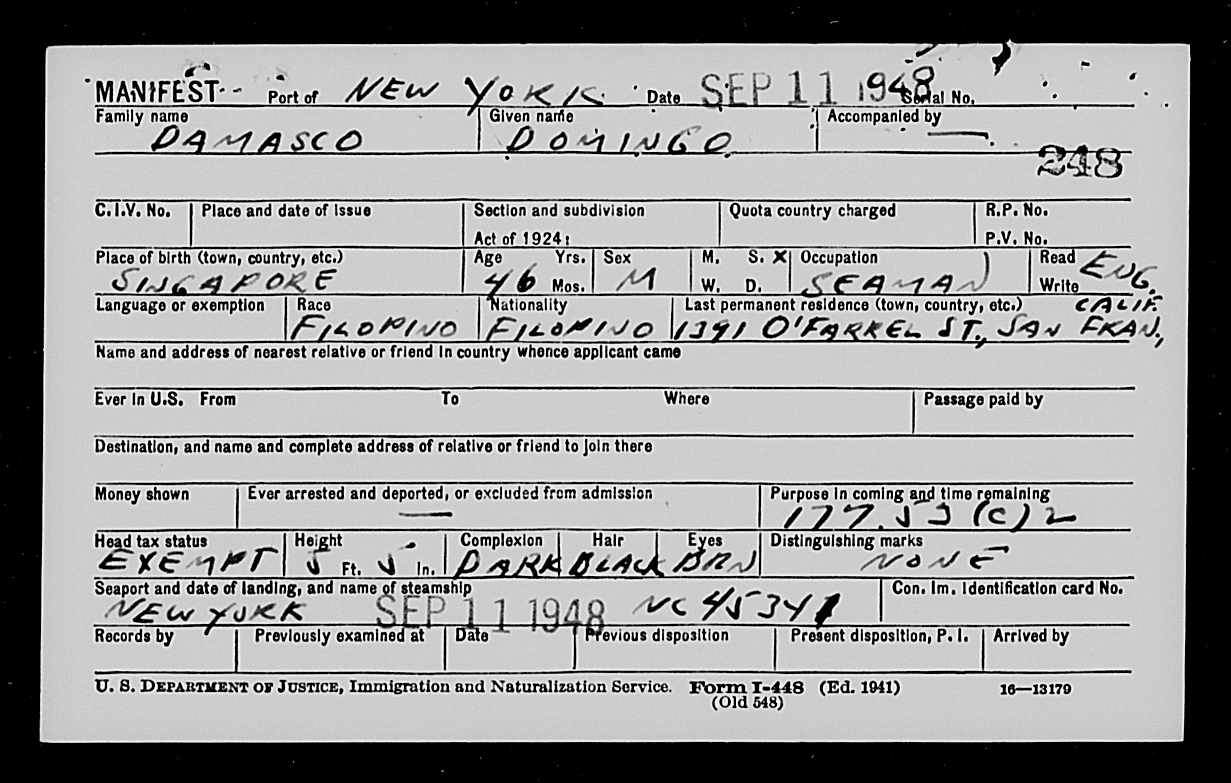 MANIFEST-- Port of NEW YORK Date SEP 11 1948 Serial No.
Family name Given name Accompanied by
DAMASCO DOMINGO —
248
C.I.V. No. Place and date of issue Section and subdivision Quota country charged R.P. No.
Act of 1924: P.V. No.
Place of birth (town, country, etc.) Age Yrs. Sex M. S. X Occupation Read ENG.
SINGAPORE 46 Mos. M W. D. SEAMAN Write
Language or exemption Race Nationality Last permanent residence (town, country, etc.) CALIF.
FILOPINO FILOPINO 1391 O'FARREL ST., SAN FRAN,
Name and address of nearest relative or friend in country whence applicant came
Ever in U.S. From To Where Passage paid by
Destination, and name and complete address of relative or friend to join there
Money shown Ever arrested and deported, or excluded from admission Purpose in coming and time remaining
— 177.53 (C) 2
Head tax status Height Complexion Hair Eyes Distinguishing marks
EXEMPT 5 Ft. 5 In. DARK BLACK BRN NONE
Seaport and date of landing, and name of steamship Con. Im. Identification card No.
NEW YORK SEP 11 1948 NC 45341
Records by Previously examined at Date Previous disposition Present disposition, P. I. Arrived by
U. S. DEPARTMENT OF JUSTICE, Immigration and Naturalization Service. Form I-448 (Ed. 1941) 16—13179
(Old 548)